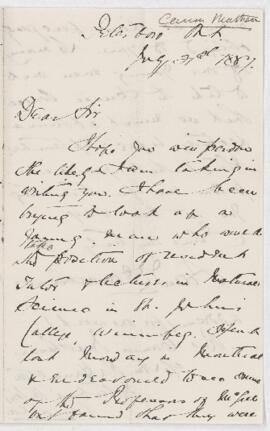 Peterboro' Ont.
July 27th 1887.
Dear Sir
I hope you will pardon
the liberty I am taking in
writing you. I have been
trying to look up a
young man who would
take
the position of resident
Tutor & lecturer in Natural
Science in St. John's
College, Winnipeg. I spent
last Monday in Montreal
& endeavoured to see some
of the Professors of McGill
but found that they were